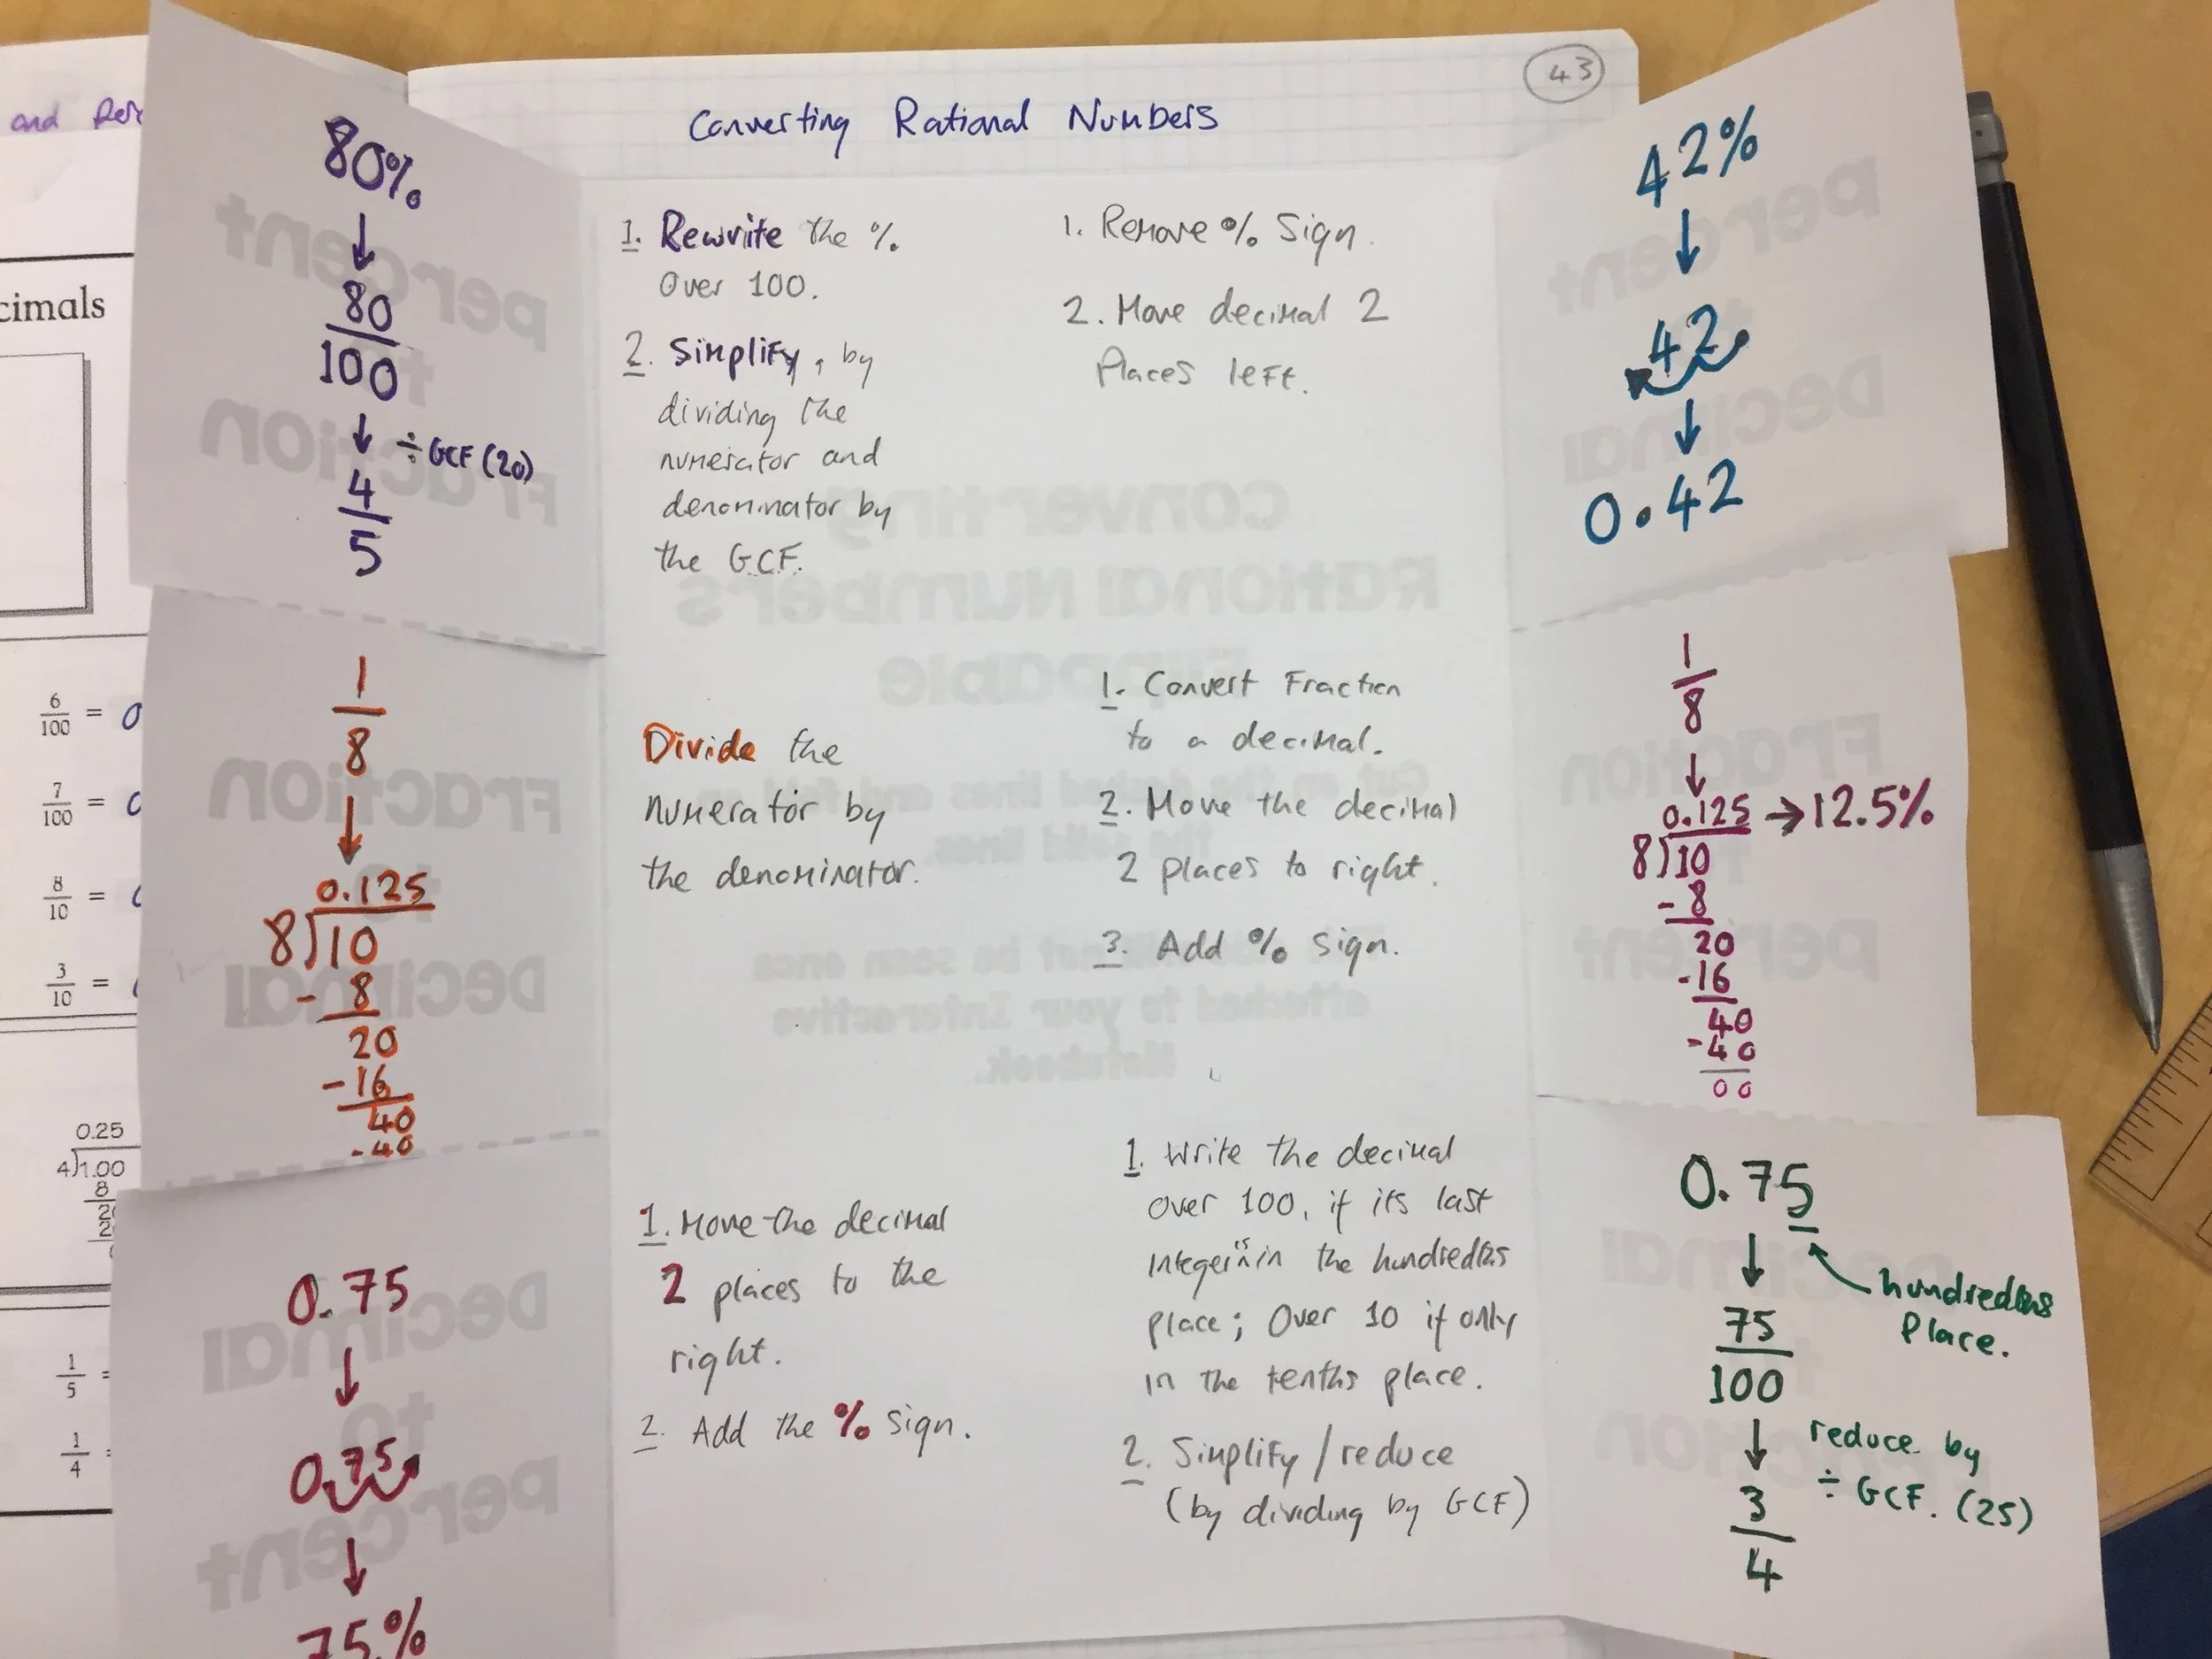 43
Converting Rational Numbers
and
cimals
6/100 = 0
7/100 =
8/10 =
3/10 =
0.25
4)1.00
8
1/5 =
1/4 =
80%
↓
80/100
↓ ÷ GCF (20)
4/5
1. Rewrite the %
Over 100.
2. Simplify, by
dividing the
numerator and
denominator by
the GCF.
1. Remove % Sign.
2. Move decimal 2
Places left.
42%
↓
42.
↓
0.42
1/8
↓
0.125
8)10
- 8
20
-16
40
-40
Divide the
numerator by
the denominator.
1. Convert Fraction
to a decimal.
2. Move the decimal
2 places to right.
3. Add % Sign.
1/8
↓
0.125 → 12.5%
8)10
- 8
20
-16
40
-40
00
0.75
↓
0.75
↓
75.%
1. Move the decimal
2 places to the
right.
2. Add the % sign.
1. Write the decimal
over 100, if its last
integer is in the hundredths
place; Over 10 if only
in the tenths place.
2. Simplify/reduce
(by dividing by GCF)
0.75
↓ hundredths
Place.
75/100
↓ reduce by
÷ GCF. (25)
3/4
percent
to
Fraction
percent
to
Decimal
converting
Rational Numbers
Flippable
Fraction
to
Decimal
cut on the dotted lines and fold on
the solid lines.
Fraction
to
percent
not be seen once
attached to your Interactive
Notebook.
Decimal
to
percent
Decimal
to
Fraction